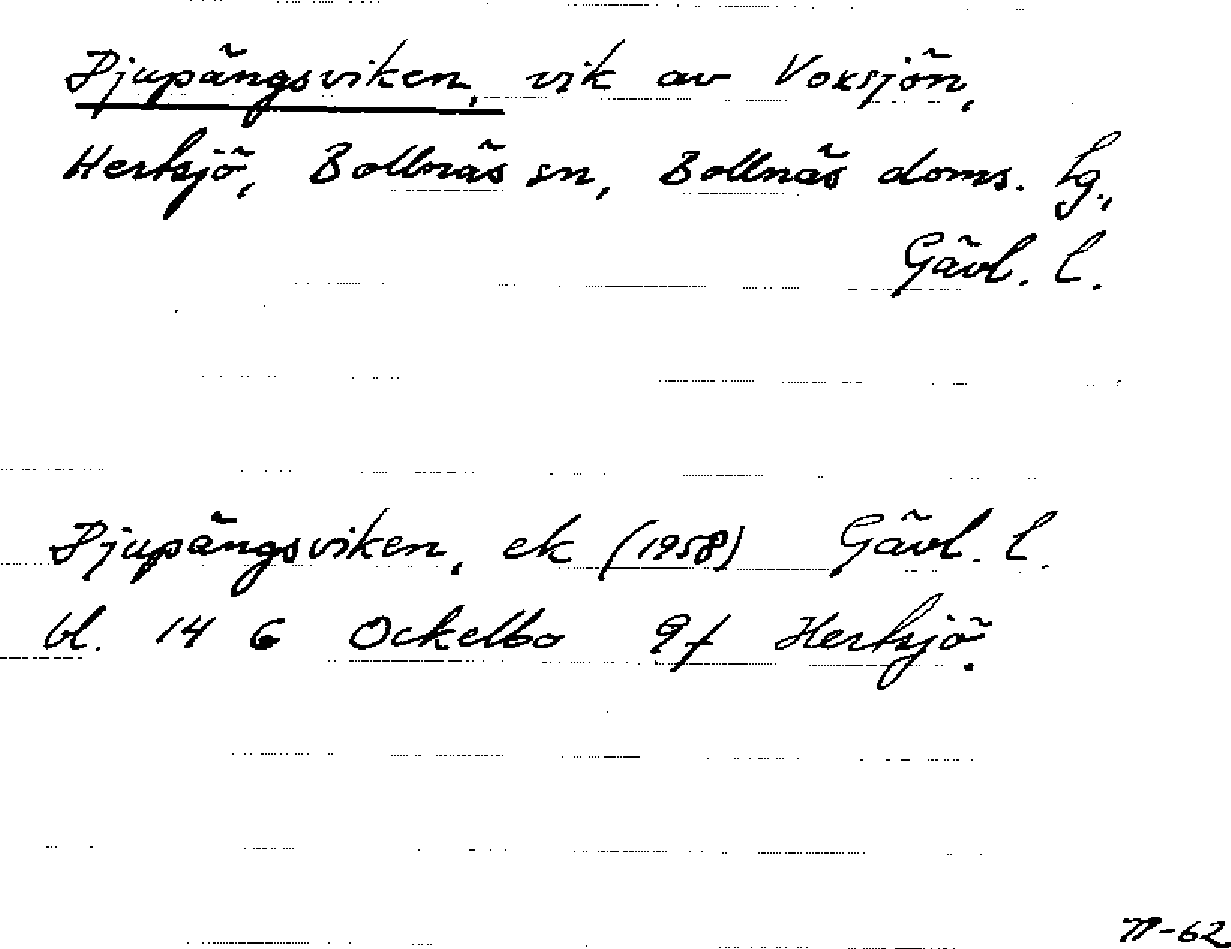 Djupängsviken, vik av Voxsjön,
Hertesjö, Bollnäs sn, Bollnäs doms. hg.,
Gävl. l.
Djupängsviken, ek (1958) Gävl. l.
bl. 14 G Ockelbo 9f Hertsjö.
-62